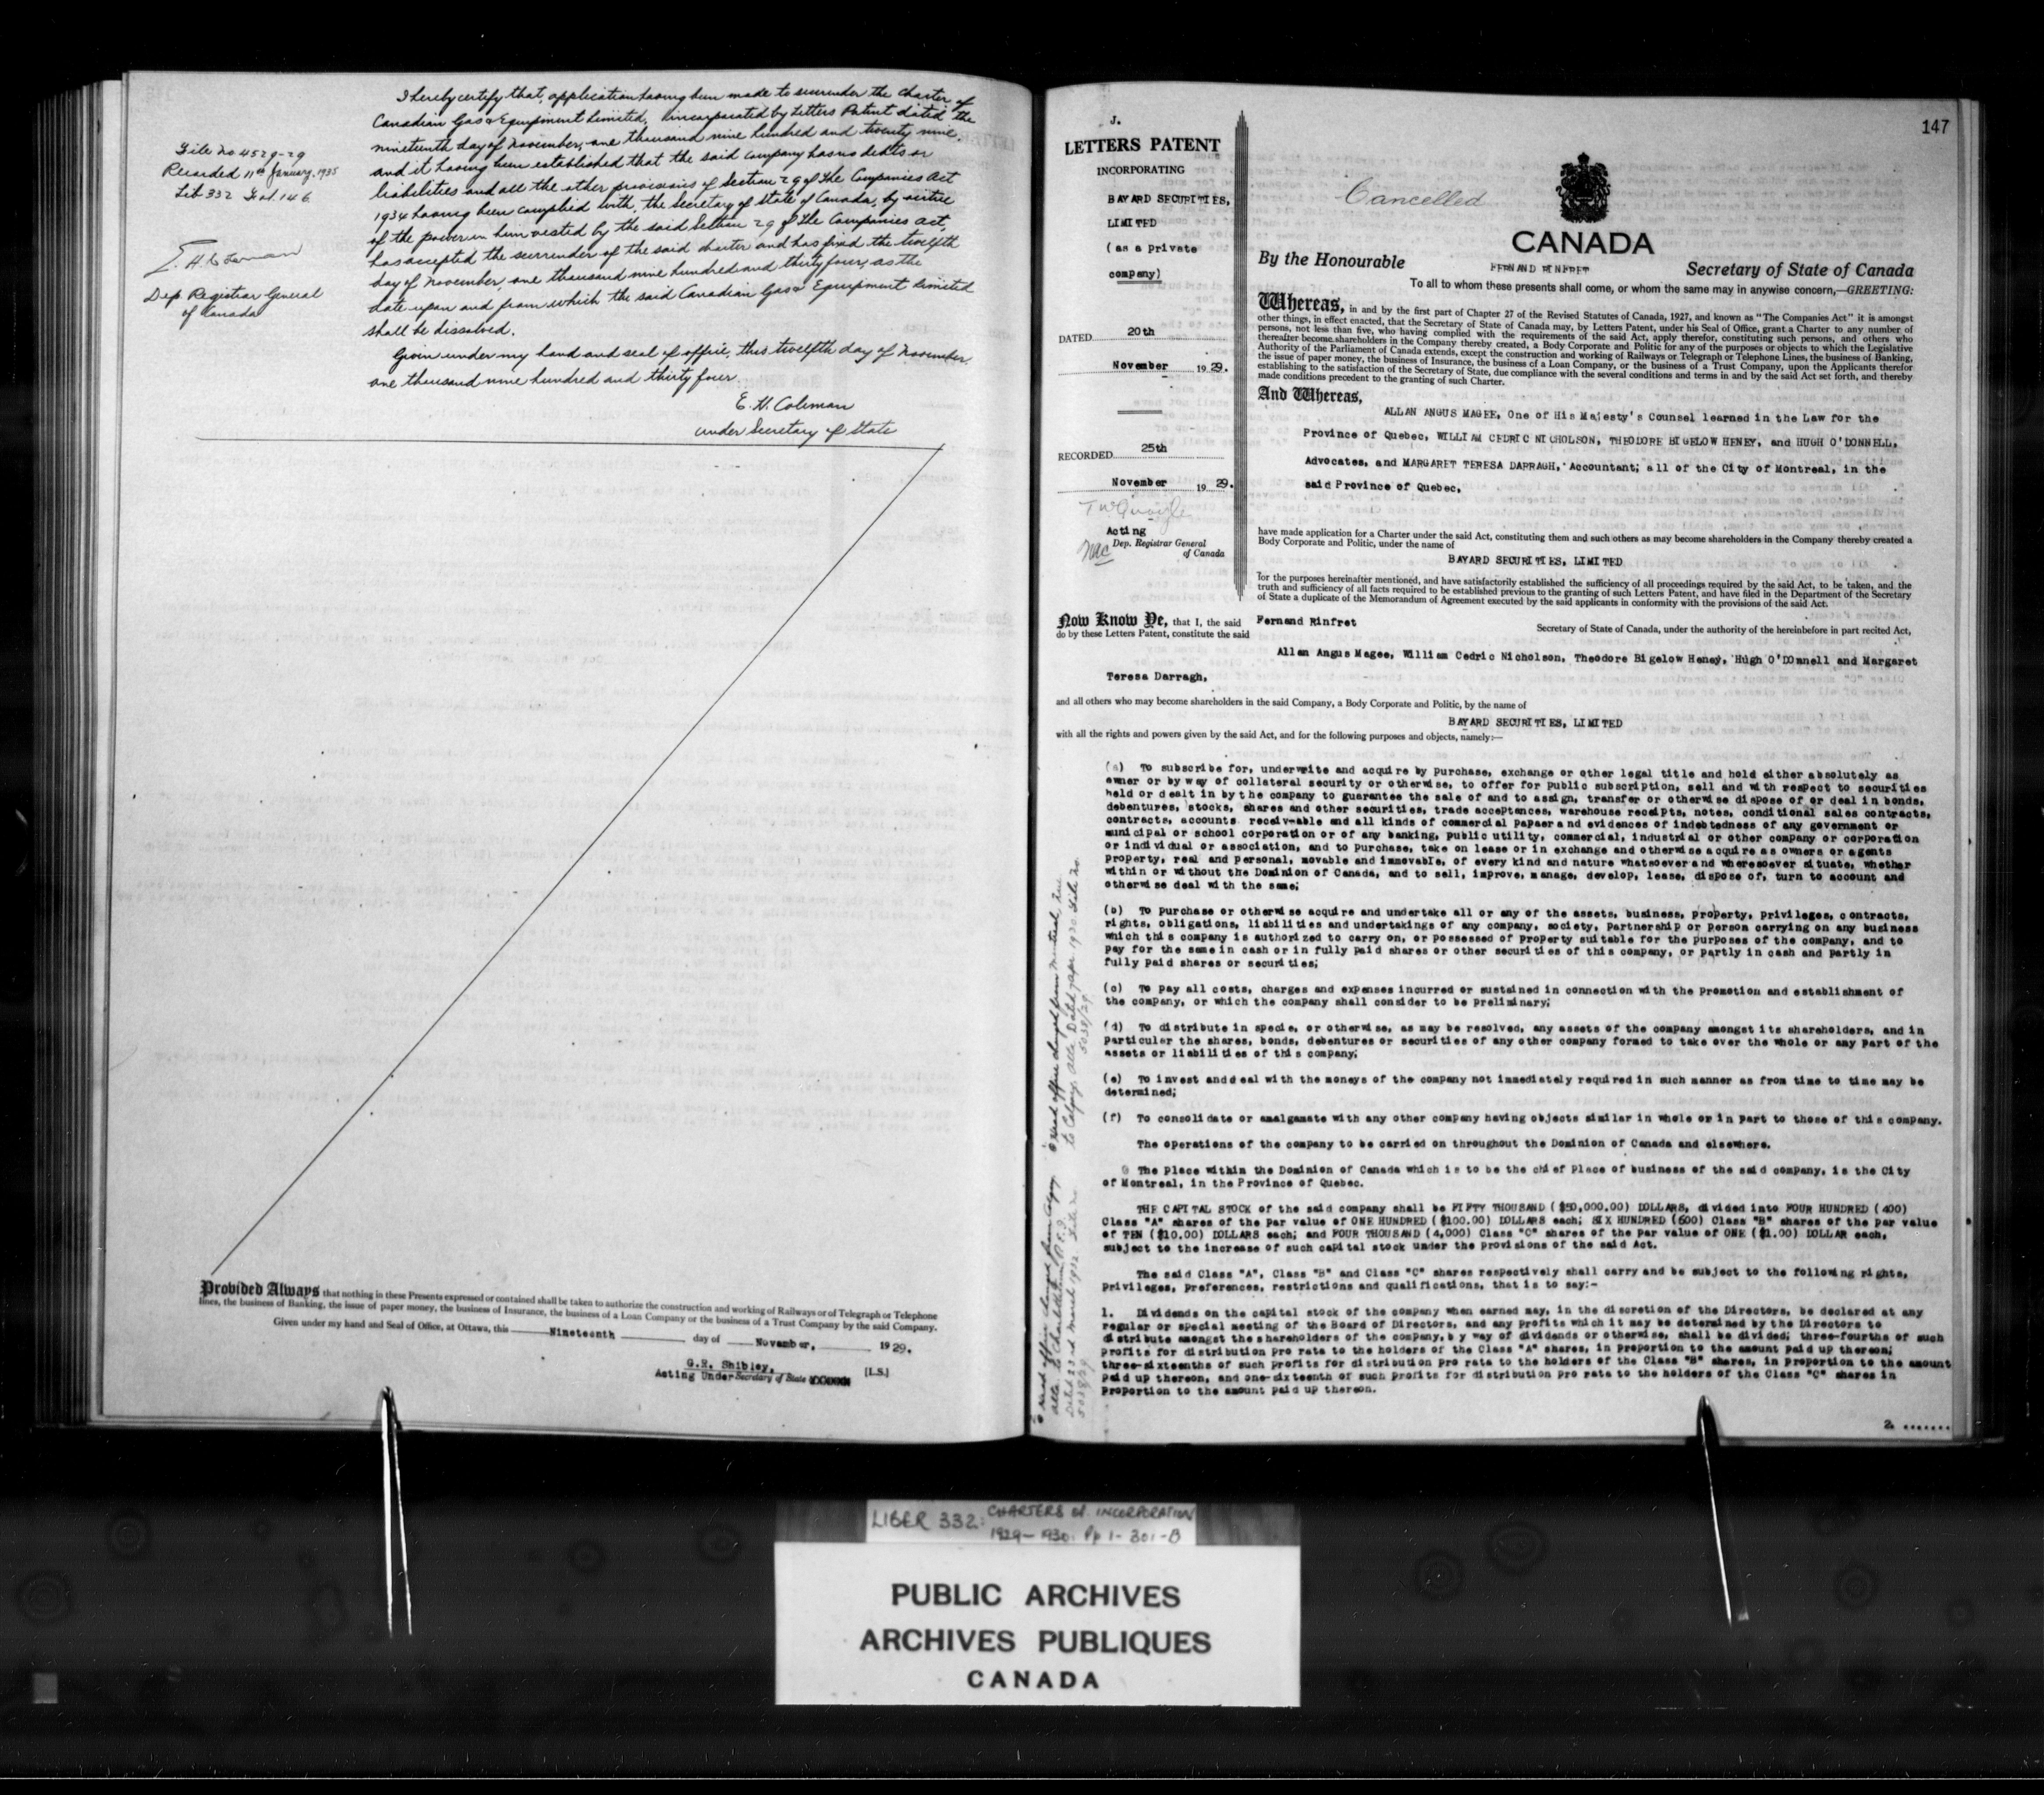 I hereby certify that, application having been made to surrender the Charter of
Canadian Gas & Equipment Limited, incorporated by Letters Patent dated the
nineteenth day of November, one thousand nine hundred and twenty nine,
and it having been established that the said company has no debts or
liabilities and all the other provisions of Section 29 of the Companies Act
1934 having been complied with, the Secretary of State of Canada, by virtue
of the power in him vested by the said Section 29 of the Companies Act,
has accepted the surrender of the said charter and has fixed the twelfth
day of November, one thousand nine hundred and thirty four, as the
date upon and from which the said Canadian Gas & Equipment Limited
shall be dissolved.
Given under my hand and seal of office, this twelfth day of November,
one thousand nine hundred and thirty four.
E. H. Coleman
Under Secretary of State
File No 4529-29
Recorded 11th January, 1935
Lib 332 Fol. 146
Dep Registrar General
of Canada
Provided Always that nothing in these Presents expressed or contained shall be taken to authorize the construction and working of Railways or of Telegraph or Telephone
lines, the business of Banking, the issue of paper money, the business of Insurance, the business of a Loan Company or the business of a Trust Company by the said Company.
Given under my hand and Seal of Office, at Ottawa, this Nineteenth day of November, 1929.
G.R. Shibley,
Acting Under Secretary of State [L.S.]
147
J.
LETTERS PATENT
INCORPORATING
BAYARD SECURITIES,
LIMITED
(as a private
company)
DATED 20th
November 1929.
RECORDED 25th
November 1929.
Acting
Dep. Registrar General
of Canada
Cancelled
CANADA
By the Honourable FERNAND RINFRET Secretary of State of Canada
To all to whom these presents shall come, or whom the same may in anywise concern,—GREETING:
Whereas, in and by the first part of Chapter 27 of the Revised Statutes of Canada, 1927, and known as "The Companies Act" it is amongst
other things, in effect enacted, that the Secretary of State of Canada may, by Letters Patent, under his Seal of Office, grant a Charter to any number of
persons, not less than five, who having complied with the requirements of the said Act, apply therefor, constituting such persons, and others who
thereafter become shareholders in the Company thereby created, a Body Corporate and Politic for any of the purposes or objects to which the Legislative
Authority of the Parliament of Canada extends, except the construction and working of Railways or Telegraph or Telephone Lines, the business of Banking,
the issue of paper money, the business of Insurance, the business of a Loan Company, or the business of a Trust Company, upon the Applicants therefor
establishing to the satisfaction of the Secretary of State, due compliance with the several conditions and terms in and by the said Act set forth, and thereby
made conditions precedent to the granting of such Charter.
And Whereas,
ALLAN ANGUS MAGEE, One of His Majesty's Counsel learned in the Law for the
Province of Quebec, WILLIAM CEDRIC NICHOLSON, THEODORE BIGELOW HENEY, and HUGH O'DONNELL,
Advocates, and MARGARET TERESA DARRAGH, Accountant; all of the City of Montreal, in the
said Province of Quebec,
have made application for a Charter under the said Act, constituting them and such others as may become shareholders in the Company thereby created a
Body Corporate and Politic, under the name of
BAYARD SECURITIES, LIMITED
for the purposes hereinafter mentioned, and have satisfactorily established the sufficiency of all proceedings required by the said Act, to be taken, and the
truth and sufficiency of all facts required to be established previous to the granting of such Letters Patent, and have filed in the Department of the Secretary
of State a duplicate of the Memorandum of Agreement executed by the said applicants in conformity with the provisions of the said Act.
Now Know Ye, that I, the said Fernand Rinfret
do by these Letters Patent, constitute the said Secretary of State of Canada, under the authority of the hereinbefore in part recited Act,
Allan Angus Magee, William Cedric Nicholson, Theodore Bigelow Heney, Hugh O'DOnnell and Margaret
Teresa Darragh,
and all others who may become shareholders in the said Company, a Body Corporate and Politic, by the name of
BAYARD SECURITIES, LIMITED
with all the rights and powers given by the said Act, and for the following purposes and objects, namely:—
(a) To subscribe for, underwrite and acquire by purchase, exchange or other legal title and hold either absolutely as
owner or by way of collateral security or otherwise, to offer for public subscription, sell and with respect to securities
held or dealt in by the company to guarantee the sale of and to assign, transfer or otherwise dispose of or deal in bonds,
debentures, stocks, shares and other securities, trade acceptances, warehouse receipts, notes, conditional sales contracts,
contracts, accounts receiv-able and all kinds of commercial papaer and evidences of indebtedness of any government or
municipal or school corporation or of any banking, public utility, commercial, industrial or other company or corporation
or individual or association, and to purchase, take on lease or in exchange and otherwise acquire as owners or agents
property, real and personal, movable and immovable, of every kind and nature whatsoever and wheresoever situate, whether
within or without the Dominion of Canada, and to sell, improve, manage, develop, lease, dispose of, turn to account and
otherwise deal with the same;
(b) To purchase or otherwise acquire and undertake all or any of the assets, business, property, privileges, contracts,
rights, obligations, liabilities and undertakings of any company, society, partnership or person carrying on any business
which this company is authorized to carry on, or possessed of property suitable for the purposes of the company, and to
pay for the same in cash or in fully paid shares or other securities of this company, or partly in cash and partly in
fully paid shares or securities;
(c) To pay all costs, charges and expenses incurred or sustained in connection with the promotion and establishment of
the company, or which the company shall consider to be preliminary;
(d) To distribute in specie, or otherwise, as may be resolved, any assets of the company amongst its shareholders, and in
particular the shares, bonds, debentures or securities of any other company formed to take over the whole or any part of the
assets or liabilities of this company;
(e) To invest and deal with the moneys of the company not immediately required in such manner as from time to time may be
determined;
(f) To consolidate or amalgamate with any other company having objects similar in whole or in part to those of this company.
The operations of the company to be carried on throughout the Dominion of Canada and elsewhere.
The place within the Dominion of Canada which is to be the chief place of business of the said company, is the City
of Montreal, in the Province of Quebec.
THE CAPITAL STOCK of the said company shall be FIFTY THOUSAND ($50,000.00) DOLLARS, divided into FOUR HUNDRED (400)
Class "A" shares of the par value of ONE HUNDRED ($100.00) DOLLARS each; SIX HUNDRED (600) Class "B" shares of the par value
of TEN ($10.00) DOLLARS each; and FOUR THOUSAND (4,000) Class "C" shares of the par value of ONE ($1.00) DOLLAR each,
subject to the increase of such capital stock under the provisions of the said Act.
The said Class "A", Class "B" and Class "C" shares respectively shall carry and be subject to the following rights,
privileges, preferences, restrictions and qualifications, that is to say:-
1. Dividends on the capital stock of the company when earned may, in the discretion of the Directors, be declared at any
regular or special meeting of the Board of Directors, and any profits which it may be determined by the Directors to
distribute amongst the shareholders of the company, by way of dividends or otherwise, shall be divided; three-fourths of such
profits for distribution pro rata to the holders of the Class "A" shares, in proportion to the amount paid up thereon;
three-sixteenths of such profits for distribution pro rata to the holders of the Class "B" shares, in proportion to the amount
paid up thereon, and one-sixteenth of such profits for distribution pro rata to the holders of the Class "C" shares in
proportion to the amount paid up thereon.
2. .......
Head office changed from Montreal, Que.
to Calgary, Alta. Dated Apr. 1930 File No.
5038/29
Head office changed from Calgary
Alta. to Charlottetown P.E.I.
Dated 23rd March 1932 File No
5038/29
LIBER 332: CHARTERS OF INCORPORATION
1929-1930. Pp 1-301-B
PUBLIC ARCHIVES
ARCHIVES PUBLIQUES
CANADA